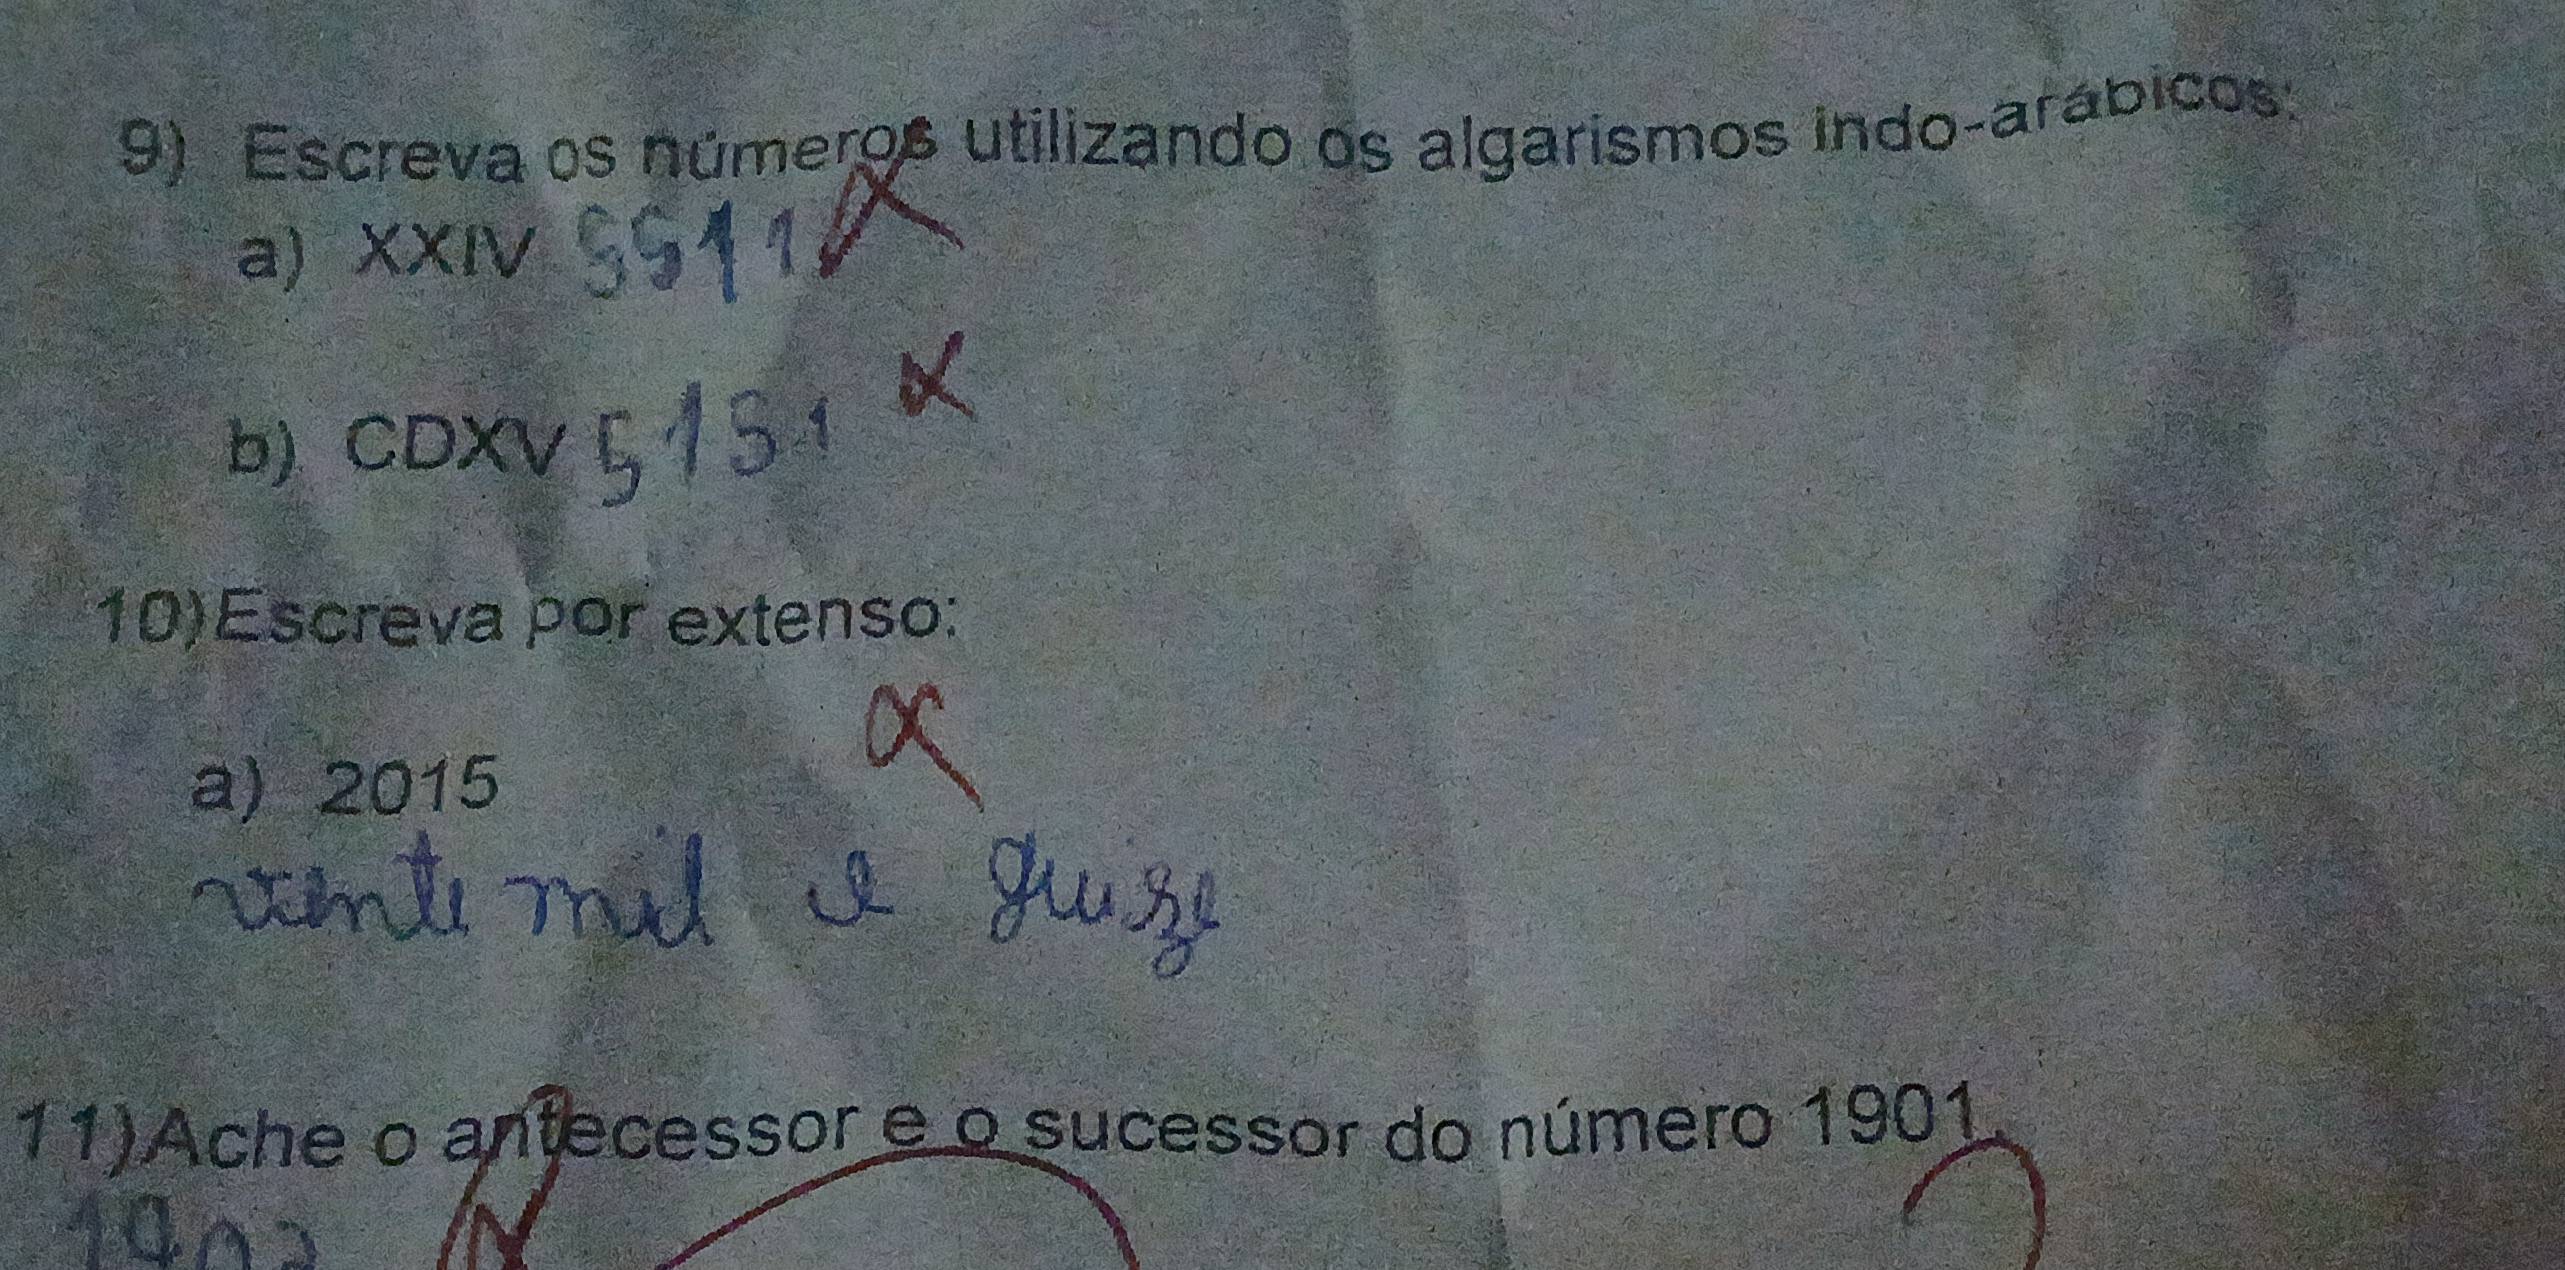 9) Escreva os números utilizando os algarismos indo-arábicos:
a) XXIV 5511
b) CDXV 5151
10) Escreva por extenso:
a) 2015
vinte mil e quize
11) Ache o antecessor e o sucessor do número 1901.
1902